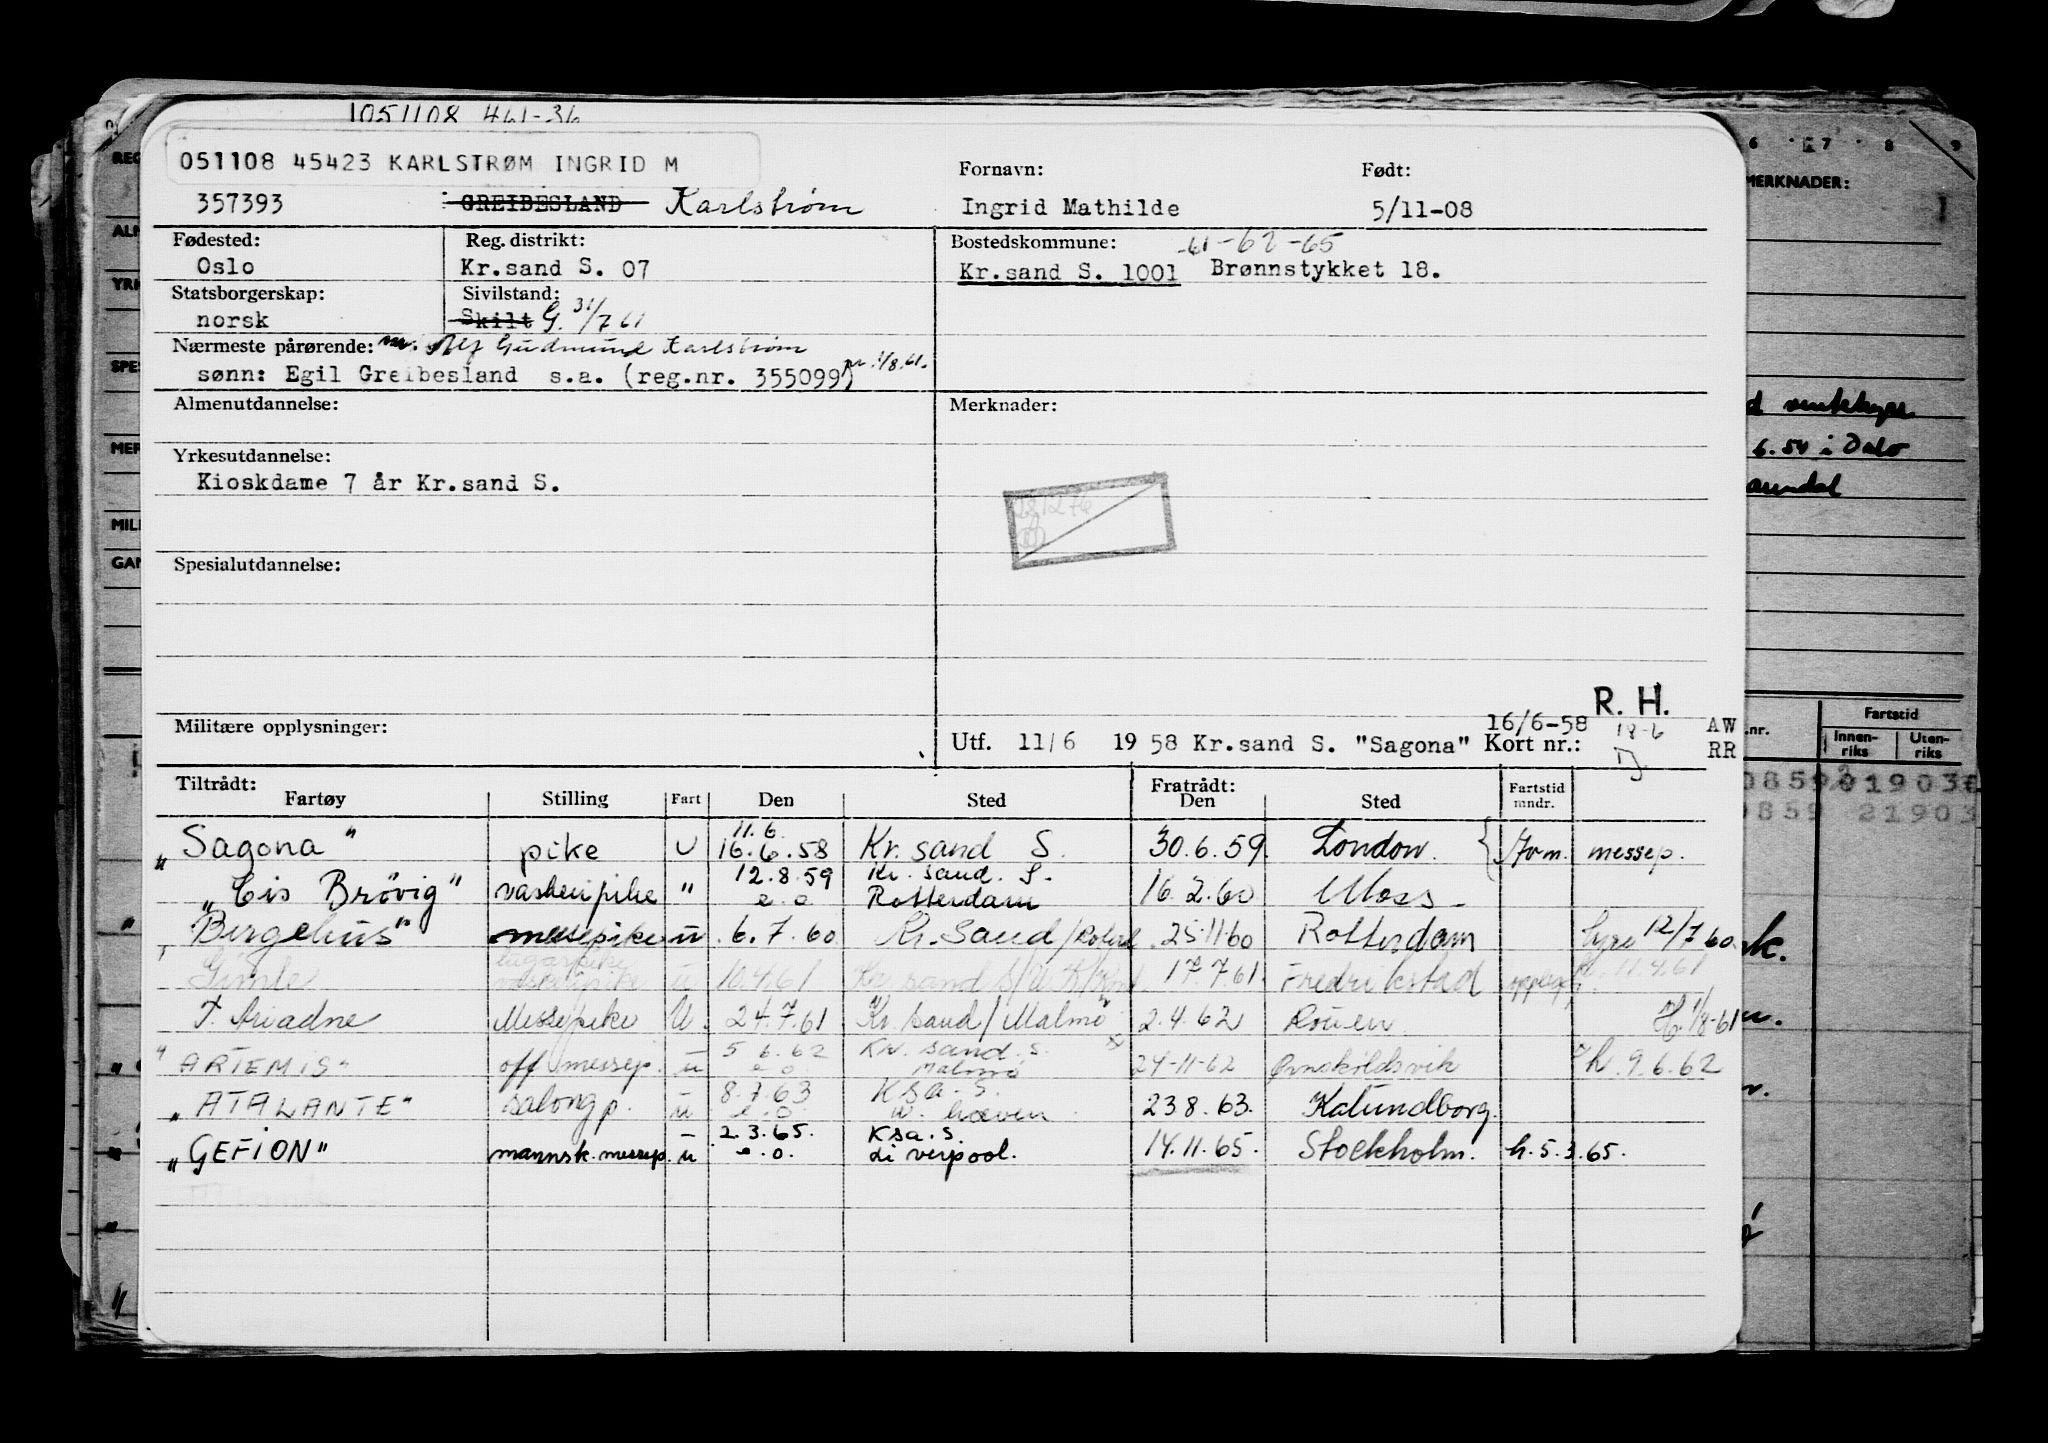 1051108 461-36
051108 45423 KARLSTRØM INGRID M
Fornavn: Født:
357393 GREIBESLAND Karlstrøm Ingrid Mathilde 5/11-08
Fødested: Reg. distrikt: Bostedskommune: -61-62-65
Oslo Kr.sand S. 07 Kr.sand S. 1001 Brønnstykket 18.
Statsborgerskap: Sivilstand:
norsk Skilt G. 31/7 61
Nærmeste pårørende: m. Alf Gudmund Karlstrøm
sønn: Egil Greibesland s.a. (reg.nr. 355099) 1/8.61.
Almenutdannelse: Merknader:
Yrkesutdannelse:
Kioskdame 7 år Kr.sand S.
Spesialutdannelse:
R. H.
Militære opplysninger: 16/6-58 18-6 AW
Utf. 11/6 1958 Kr.sand S. "Sagona" Kort nr.: RR
Tiltrådt: Fratrådt: Fartstid
Fartøy Stilling Fart Den Sted Den Sted mndr.
11.6.
"Sagona" pike U 16.6.58 Kr. sand S. 30.6.59. London. messep.
12.8.59 Kr. sand. S.
"Cis Brøvig" vaskeripike " e.o. Rotterdam 16.2.60 Moss
"Bergehus" messepike u 6.7.60 Kr. Sand 25.11.60 Rotterdam 12/7 60
Gimle u 10.4.61 Kr. sand S 17.7.61. Fredrikstad 11.4.61
T. Ariadne Messepike U. 24.7.61 Kr. sand / Malmö 2.4.62 Rouen H. 1/8-61
5 6.62 Kr. sand. S.
"ARTEMIS" off messep. u e.o. Malmö 24-11-62 Ørnsköldsvik h. 9.6.62
8.7.63 Ksa. S.
"ATALANTE" salongp. u e.o. w. haven 23.8.63. Kalundborg.
2.3.65. Ksa. S.
"GEFION" mannsk. messep. u e.o. Liverpool. 14.11.65. Stockholm. h. 5.3.65.
MERKNADER:
6.54 i Oslo
Arendal
Fartstid
Innen-riks Uten-riks